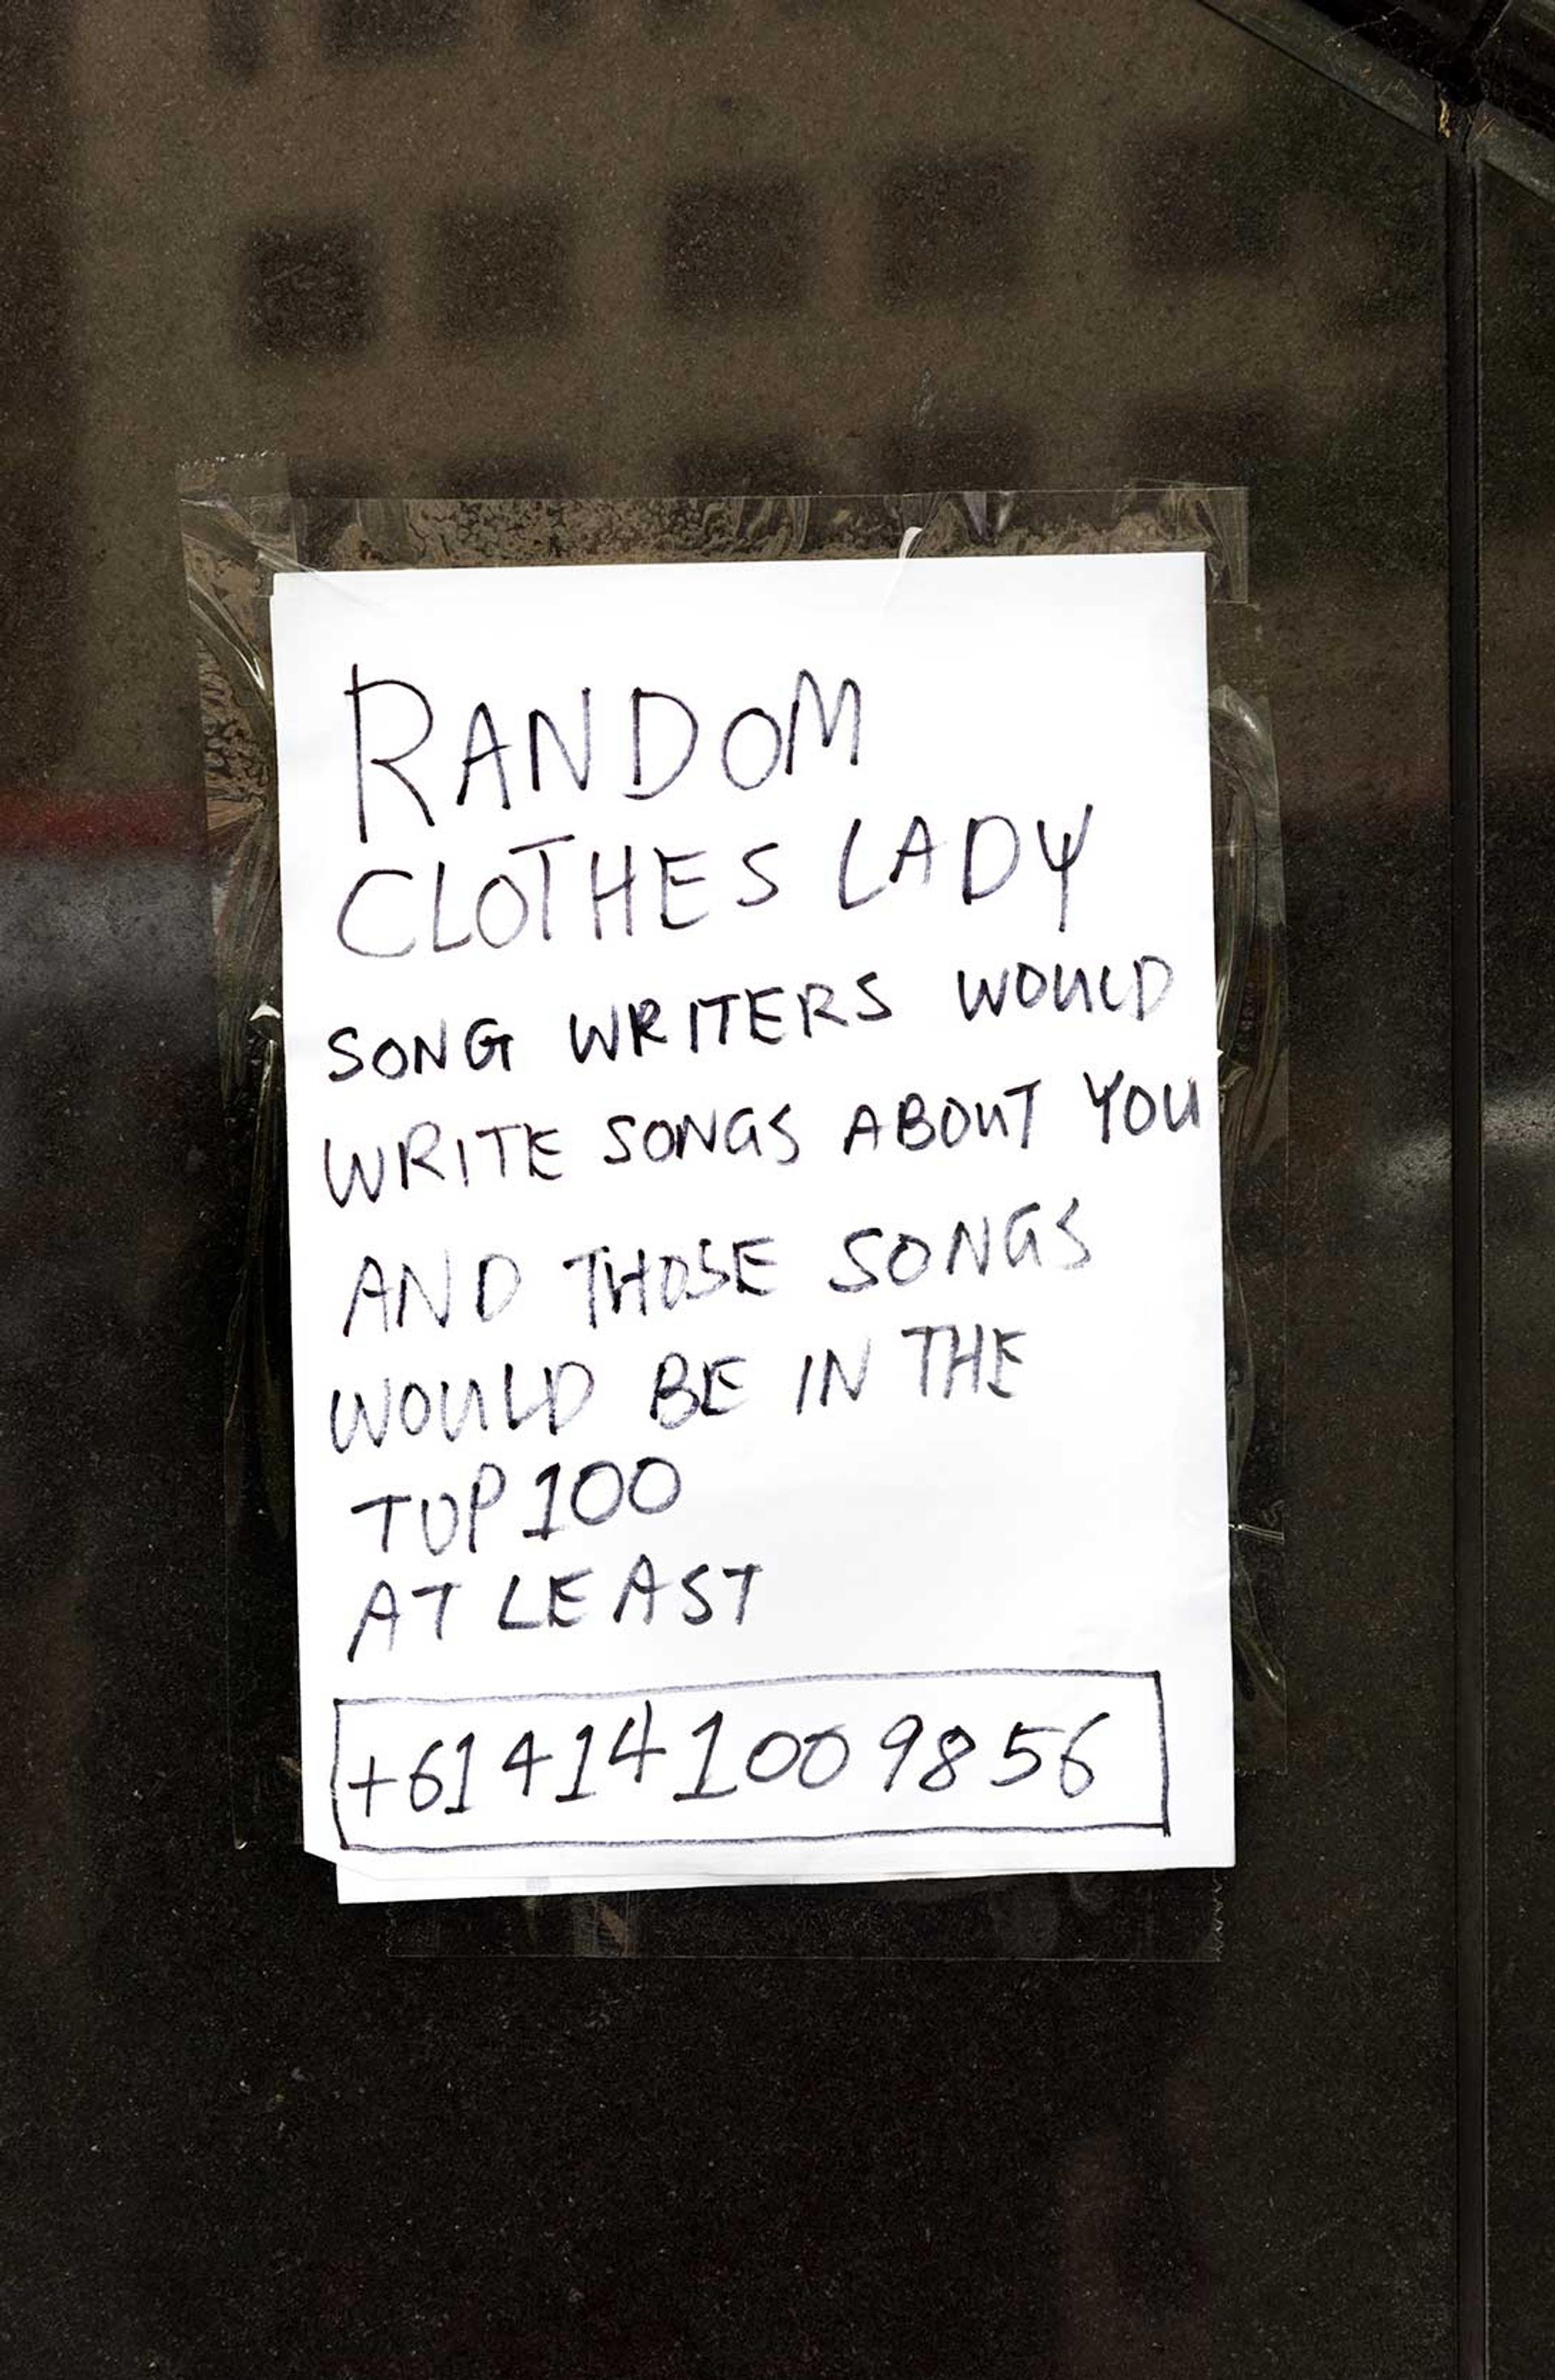 RANDOM
CLOTHES LADY
SONG WRITERS WOULD
WRITE SONGS ABOUT YOU
AND THOSE SONGS
WOULD BE IN THE
TOP 100
AT LEAST
+61 414 100 9856